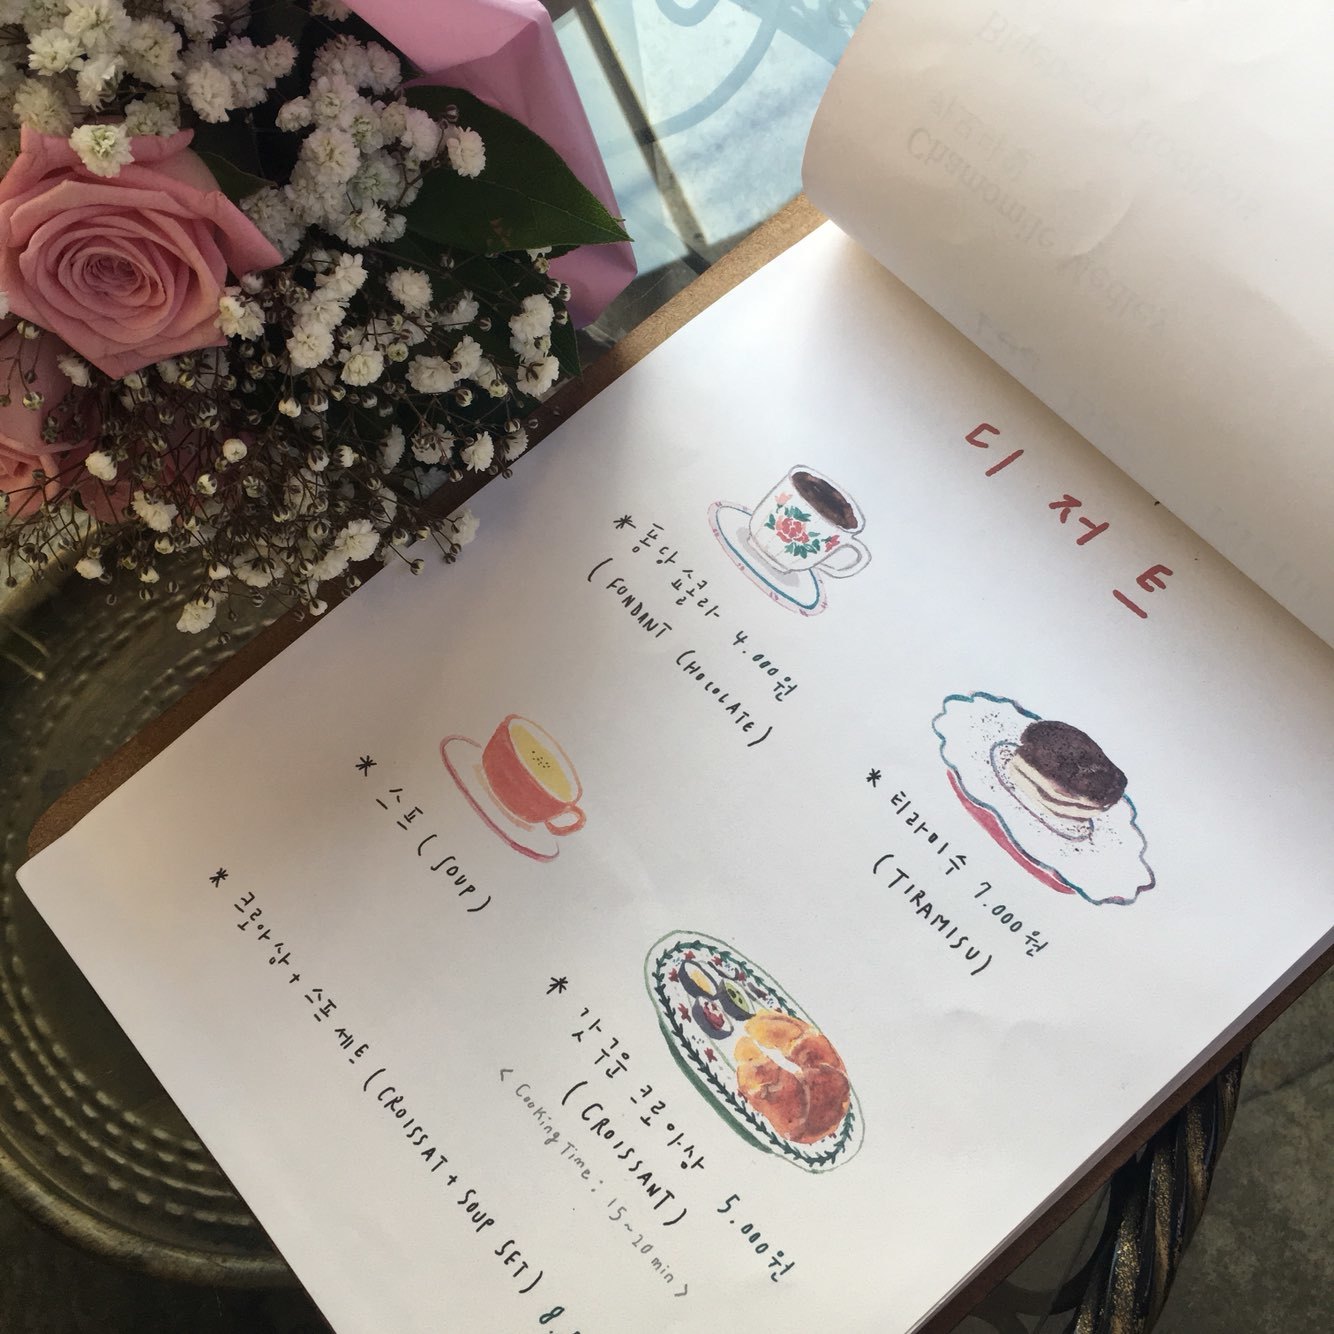 디저트
* 퐁당 쇼콜라 4.000원
(FONDANT CHOCOLATE)
* 티라미수 7.000원
(TIRAMISU)
* 스프 (SOUP)
* 갓구운 크로아상 5.000원
(CROISSANT)
< Cooking Time : 15~20 min >
* 크로아상 + 스프 세트 (CROISSAT + SOUP SET) 8.